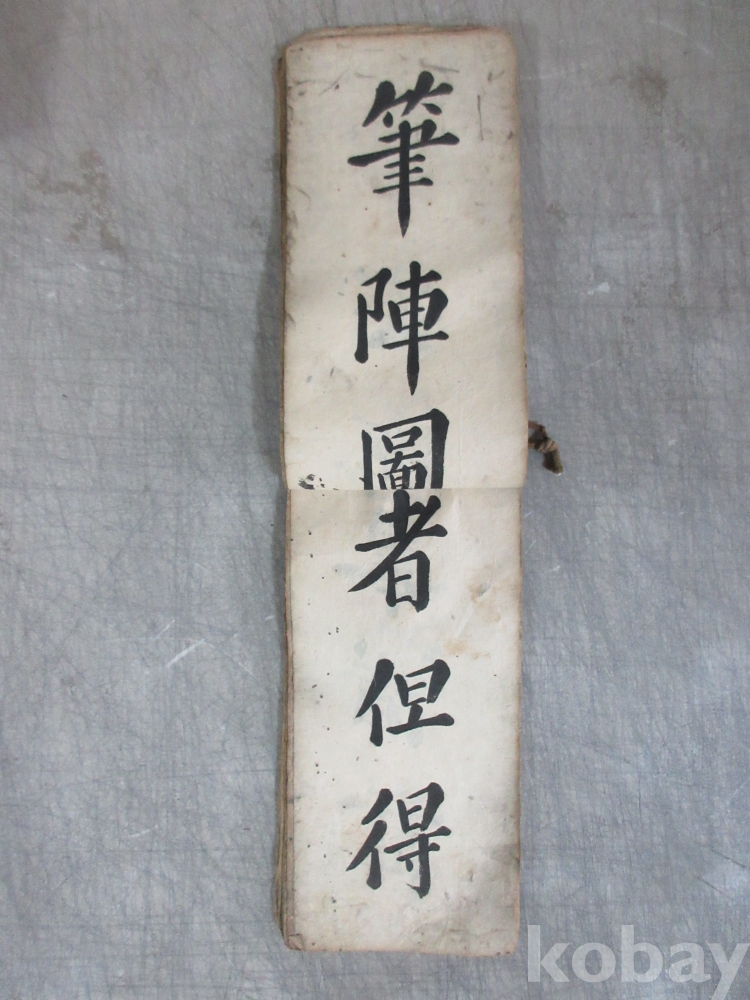 筆陣圖者但得
kobay